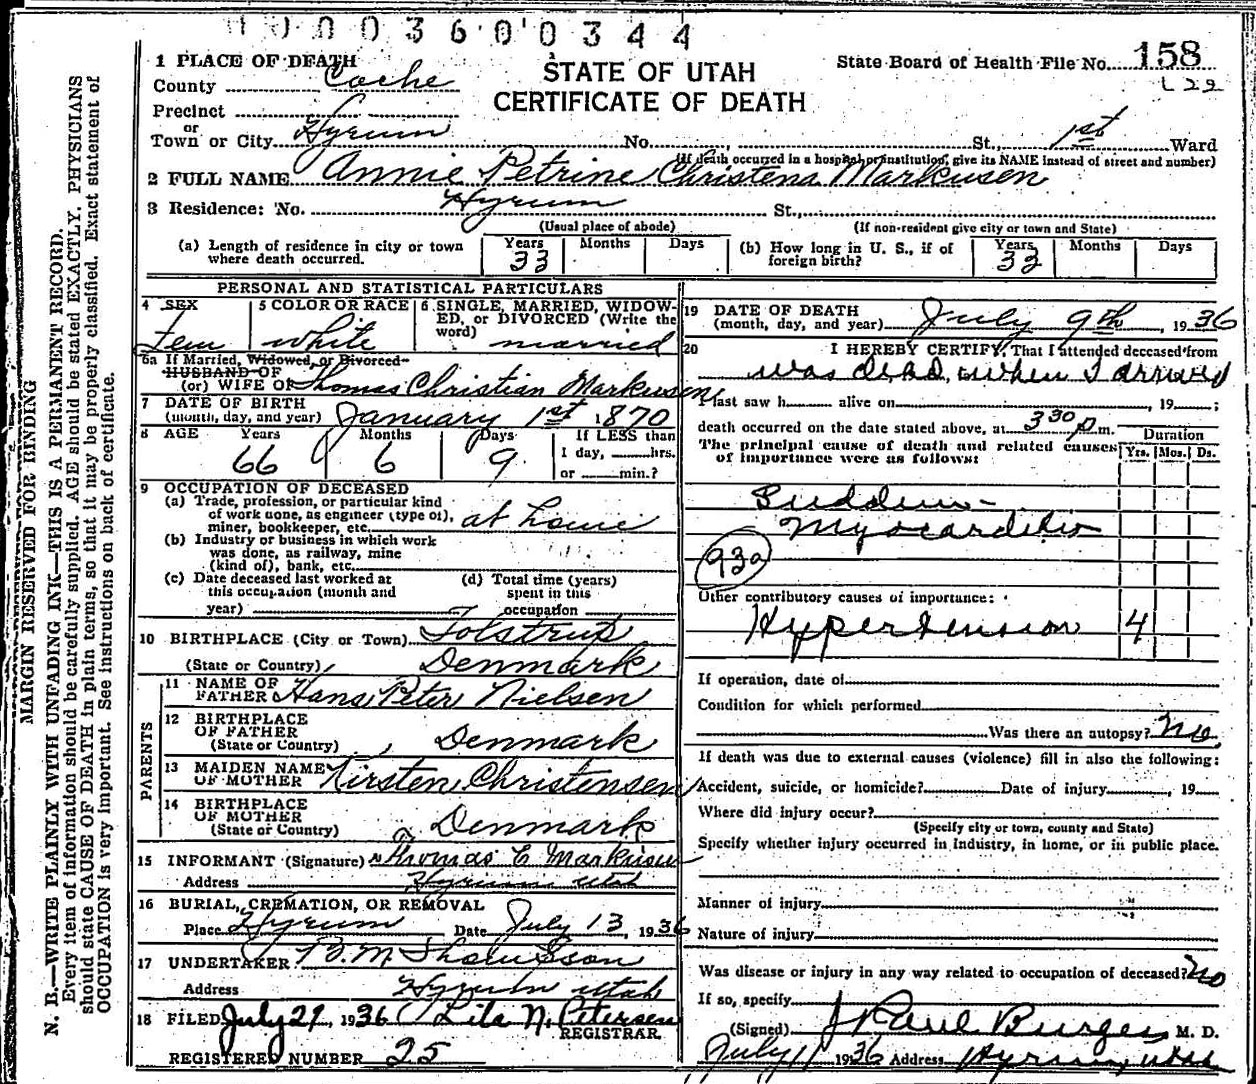 1000360'0344
1 PLACE OF DEATH
County Cache
STATE OF UTAH
CERTIFICATE OF DEATH
State Board of Health File No. 158
L 22
Precinct
or
Town or City Hyrum No. St., 1st Ward
(If death occurred in a hospital or institution, give its NAME instead of street and number)
2 FULL NAME Annie Petrine Christena Markusen
3 Residence: No. Hyrum St.,
(Usual place of abode) (If non-resident give city or town and State)
(a) Length of residence in city or town where death occurred. Years 33 Months Days
(b) How long in U. S., if of foreign birth? Years 33 Months Days
PERSONAL AND STATISTICAL PARTICULARS
4 SEX Fem
5 COLOR OR RACE white
6 SINGLE, MARRIED, WIDOWED, or DIVORCED (Write the word) married
6a If Married, Widowed, or Divorced
HUSBAND OF
(or) WIFE OF Thomas Christian Markusen
7 DATE OF BIRTH
(month, day, and year) January 1st 1870
8 AGE Years 66 Months 6 Days 9 If LESS than
1 day, hrs.
or min.?
9 OCCUPATION OF DECEASED
(a) Trade, profession, or particular kind
of work done, as engineer (type of),
miner, bookkeeper, etc. at home
(b) Industry or business in which work
was done, as railway, mine
(kind of), bank, etc.
(c) Date deceased last worked at
this occupation (month and
year)
(d) Total time (years)
spent in this
occupation
10 BIRTHPLACE (City or Town) Tolstrup
(State or Country) Denmark
PARENTS
11 NAME OF
FATHER Hans Peter Nielsen
12 BIRTHPLACE
OF FATHER
(State or Country) Denmark
13 MAIDEN NAME
OF MOTHER Kirsten Christensen
14 BIRTHPLACE
OF MOTHER
(State or Country) Denmark
15 INFORMANT (Signature) Thomas C Markusen
Address Hyrum Utah
16 BURIAL, CREMATION, OR REMOVAL
Place Hyrum Date July 13, 1936
17 UNDERTAKER
Address Hyrum Utah
18 FILED July 29, 1936 Lila N. Petersen
REGISTRAR
REGISTERED NUMBER 25
19 DATE OF DEATH
(month, day, and year) July 9th, 1936
20 I HEREBY CERTIFY, That I attended deceased from
was dead when I arrived
I last saw h alive on , 19 ;
death occurred on the date stated above, at 3 30 p.m.
The principal cause of death and related causes
of importance were as follows:
Duration
Yrs. Mos. Ds.
Sudden-
Myocarditis
93a
Other contributory causes of importance:
Hypertension 4
If operation, date of
Condition for which performed
Was there an autopsy? No.
If death was due to external causes (violence) fill in also the following:
Accident, suicide, or homicide? Date of injury , 19
Where did injury occur?
(Specify city or town, county and State)
Specify whether injury occurred in industry, in home, or in public place.
Manner of injury
Nature of injury
Was disease or injury in any way related to occupation of deceased? No
If so, specify
(Signed) J Paul Burgess M. D.
July 11 1936 Address Hyrum, Utah
MARGIN RESERVED FOR BINDING
N. B.—WRITE PLAINLY WITH UNFADING INK—THIS IS A PERMANENT RECORD.
Every item of information should be carefully supplied. AGE should be stated EXACTLY. PHYSICIANS
should state CAUSE OF DEATH in plain terms, so that it may be properly classified. Exact statement of
OCCUPATION is very important. See instructions on back of certificate.